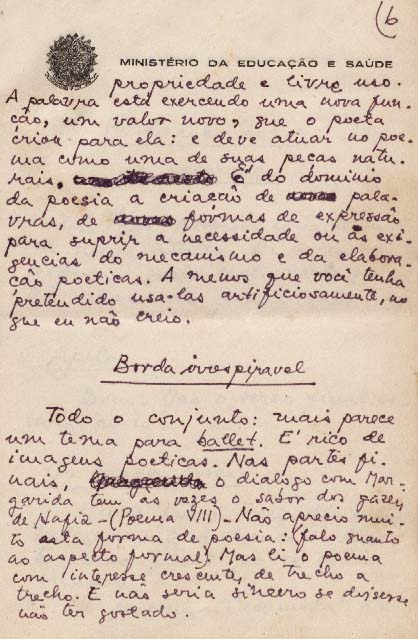 (6
MINISTÉRIO DA EDUCAÇÃO E SAÚDE
propriedade e livre uso.
A palavra está exercendo uma nova fun-
ção, um valor novo, que o poeta
criou para ela: e deve atuar no poe-
ma como uma de suas peças natu-
rais. É do dominio
da poesia a criação de pala-
vras, de formas de expressão
para suprir a necessidade ou às exi-
gencias do mecanismo e da elabora-
ção poeticas. A menos que você tenha
pretendido usa-las artificiosamente, no
que eu não creio.
Borda irrespiravel
Todo o conjunto: mais parece
um tema para ballet. É rico de
imagens poeticas. Nas partes fi-
nais, o dialogo com Mar-
garida tem às vezes o sabor dos gazéis
de Hafiz - (Poema VIII) - Não aprecio mui-
to esta forma de poesia: (falo quanto
ao aspecto formal) Mas li o poema
com interesse crescente, de trecho a
trecho. E não seria sincero se dissesse
não ter gostado.